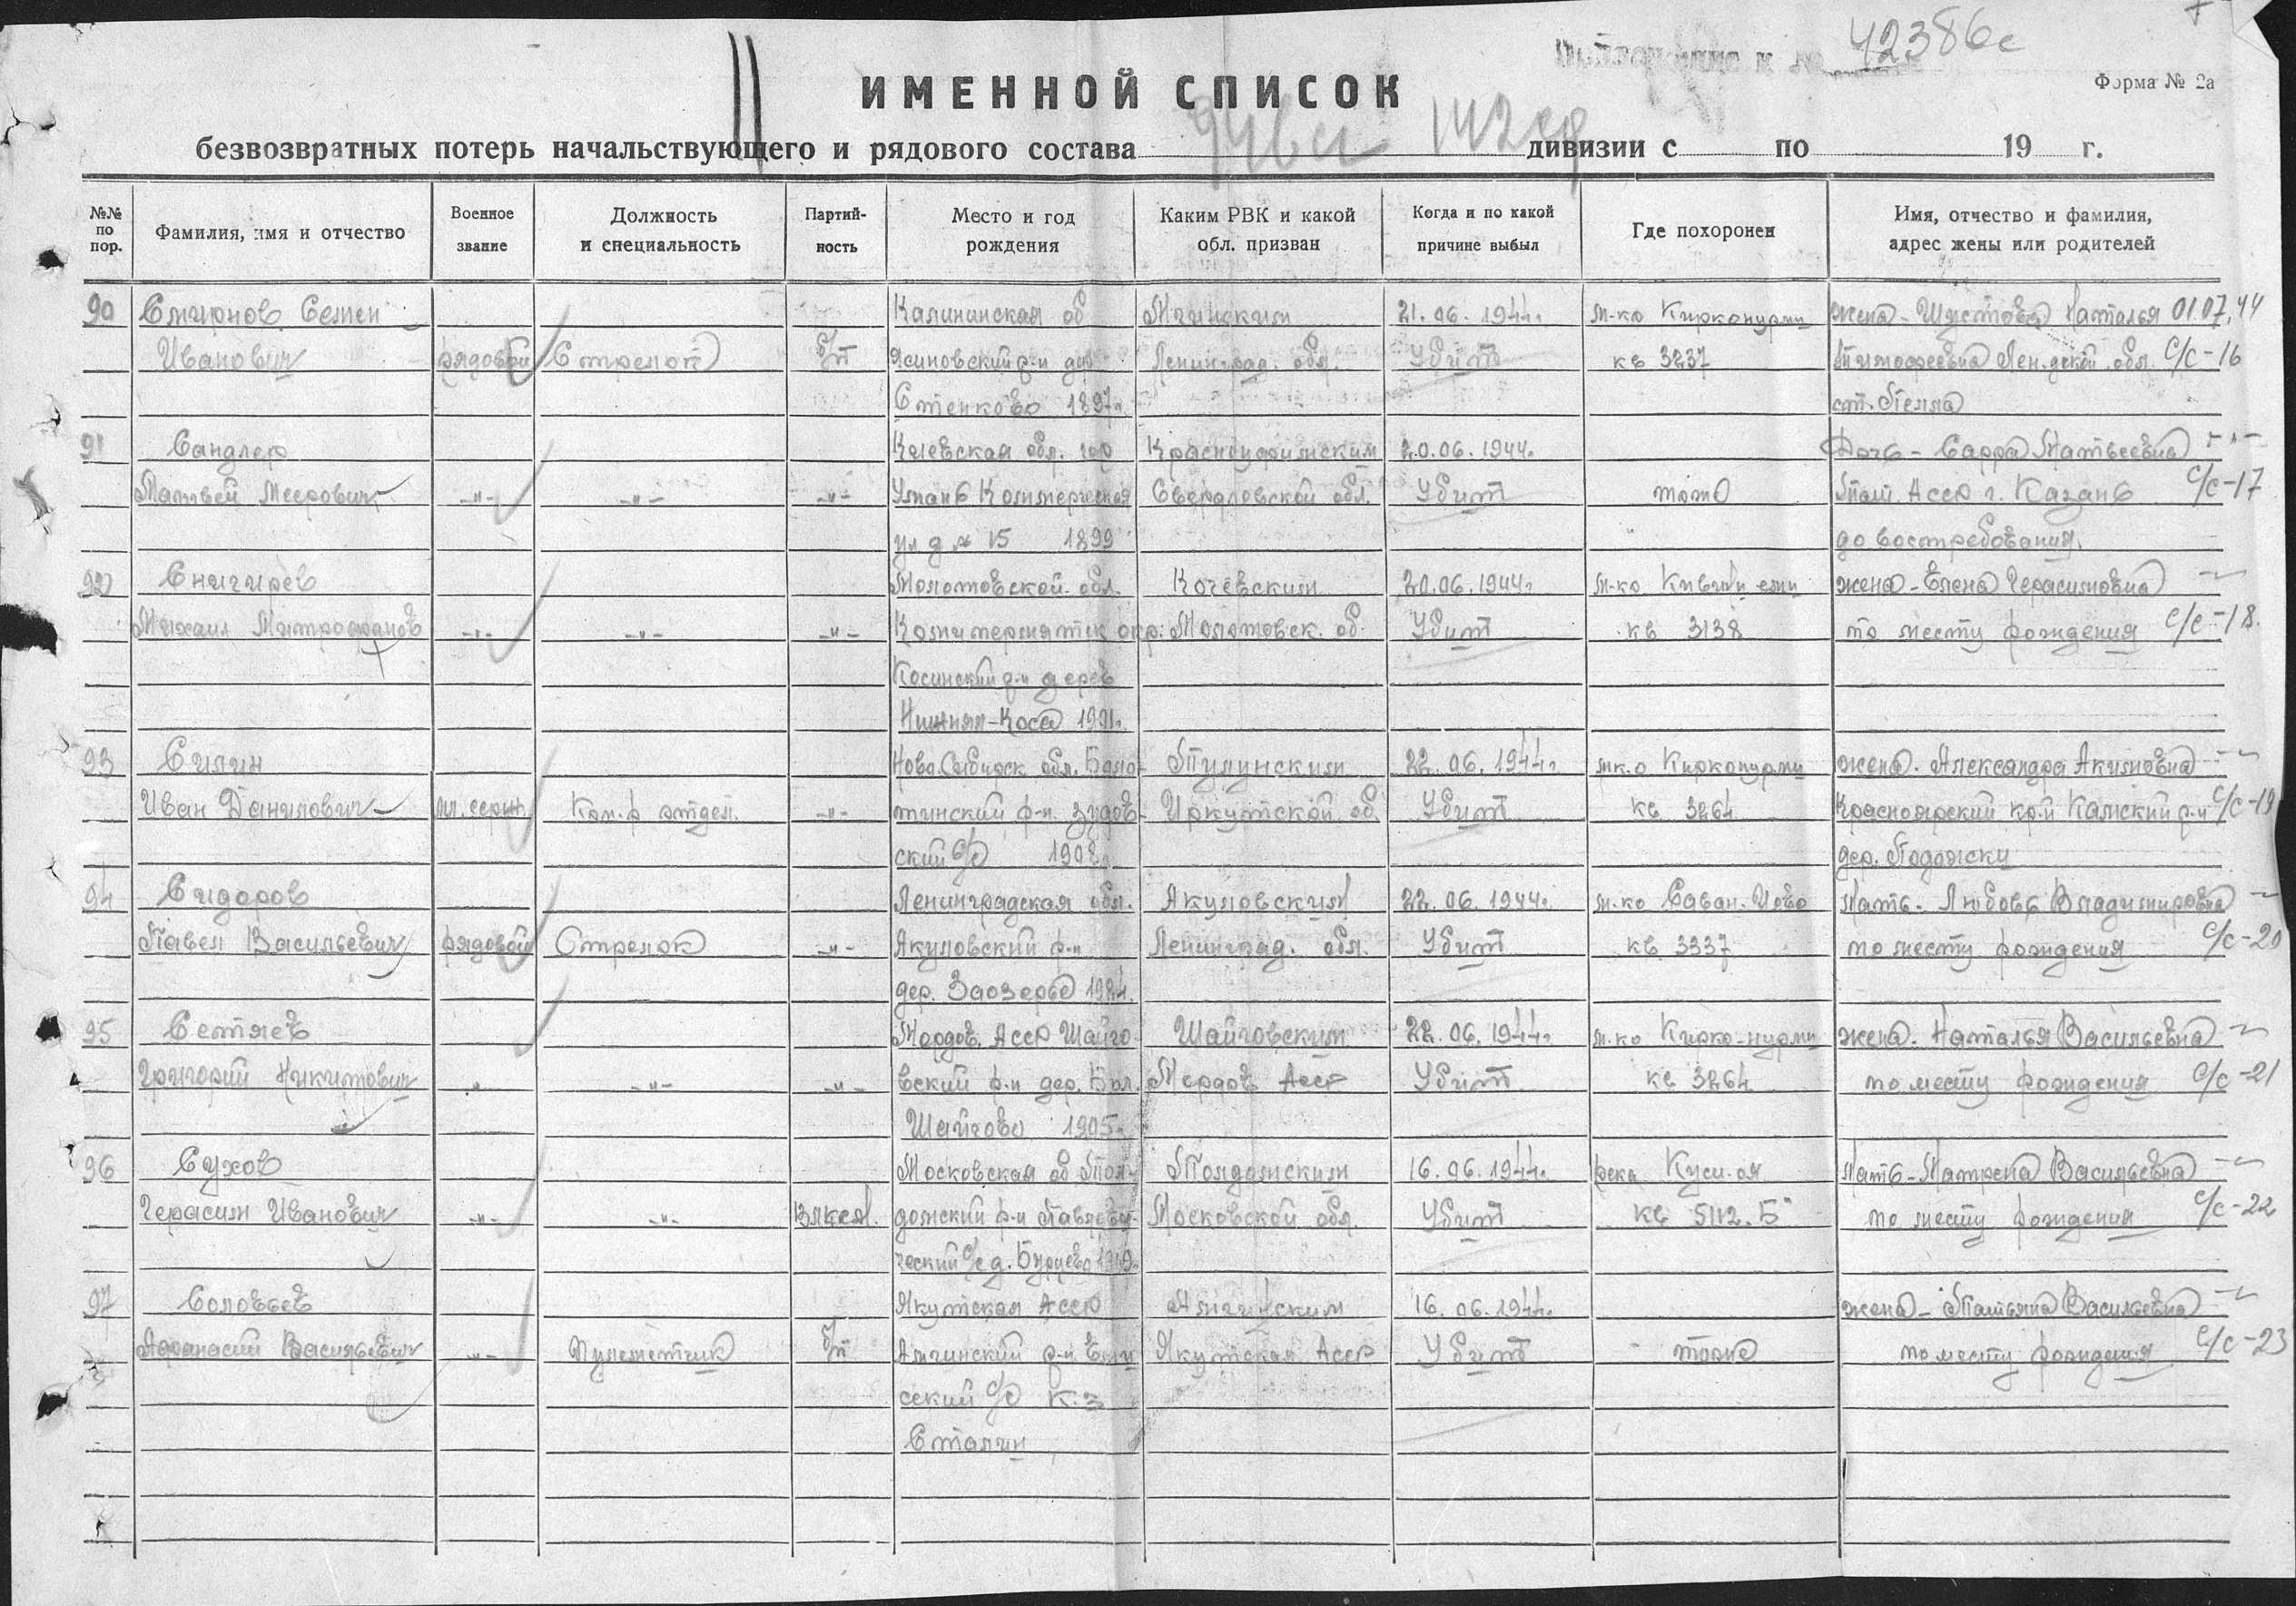 42386с
Форма № 2а
ИМЕННОЙ СПИСОК
безвозвратных потерь начальствующего и рядового состава 946 сп 142 сд дивизии с по 19 г.
№№ по пор.
Фамилия, имя и отчество
Военное звание
Должность и специальность
Партийность
Место и год рождения
Каким РВК и какой обл. призван
Когда и по какой причине выбыл
Где похоронен
Имя, отчество и фамилия, адрес жены или родителей
90 Смирнов Семен Калининская об Мгинским 21.06.1944г. м-ко Кирконурми жена - Шустова Наталья 01.07.44
Иванович рядовой Стрелок б/п р-н дер Ленинград. обл. Убит кв 3237 Тимофеевна Лен.дской обл. с/с-16
Стенково 1897г. ст. Пелла
91 Сандлер Киевская обл. гор Красноуфимским 20.06.1944г. Дочь - Сарра Матвеевна -"-
Матвей Меерович -"- -"- -"- Умань Коммерческая Свердловской обл. Убит тоже Тат. АССР г. Казань с/с-17
ул д № 15 1899 до востребования.
92 Снигирев Молотовской обл. Кочевским 20.06.1944г. м-ко жена - Елена Герасимовна -"-
Михаил Митрофанов -"- -"- -"- Комипермятск окр. Молотовск. об. Убит кв 3138 по месту рождения с/с-18.
Косинский р-н дерев
Нижняя-Коса
93 Силин Ново.Сибирск обл. Боло- Тулунским 22.06.1944г. мк.о Кирконурми жена. Александра Акимовна -"-
Иван Данилович мл. серж Ком-р отдел. -"- тинский р-н. Зудов- Иркутской об. Убит кв 3264 Красноярский кр-й Канский р-н с/с-19
ский с/с 1908г. дер.
94 Сидоров Ленинградская обл. Акуловским 22.06.1944г. м-ко Мать - Любовь Владимировна -"-
Павел Васильевич рядовой Стрелок -"- Акуловский р-н Ленинград. обл. Убит кв 3337 по месту рождения с/с-20
дер. Заозерье 1924.
95 Сетяев Мордов. АССР Шайго- Шайговским 22.06.1944г. м-ко Кирко-нурми жена. Наталья Васильевна -"-
Григорий Никитович -"- -"- -"- вский р-н дер. Бол. Мордов АССР Убит кв 3264 по месту рождения с/с-21
Шайгово 1905г.
96 Сухов Московская об Тал- Талдомским 16.06.1944г. река Мать - Матрена Васильевна -"-
Герасим Иванович -"- -"- ВЛКСМ. домский р-н Московской обл. Убит кв 5112.Б по месту рождения с/с-22
ческий с/с д.
97 Соловьев Якутская АССР Амгинским 16.06.1944г. жена - Татьяна Васильевна -"-
Афанасий Васильевич -"- Пулеметчик б/п Амгинский р-н Якутская АССР Убит тоже по месту рождения с/с-23
ский с/с к-з
Сталин